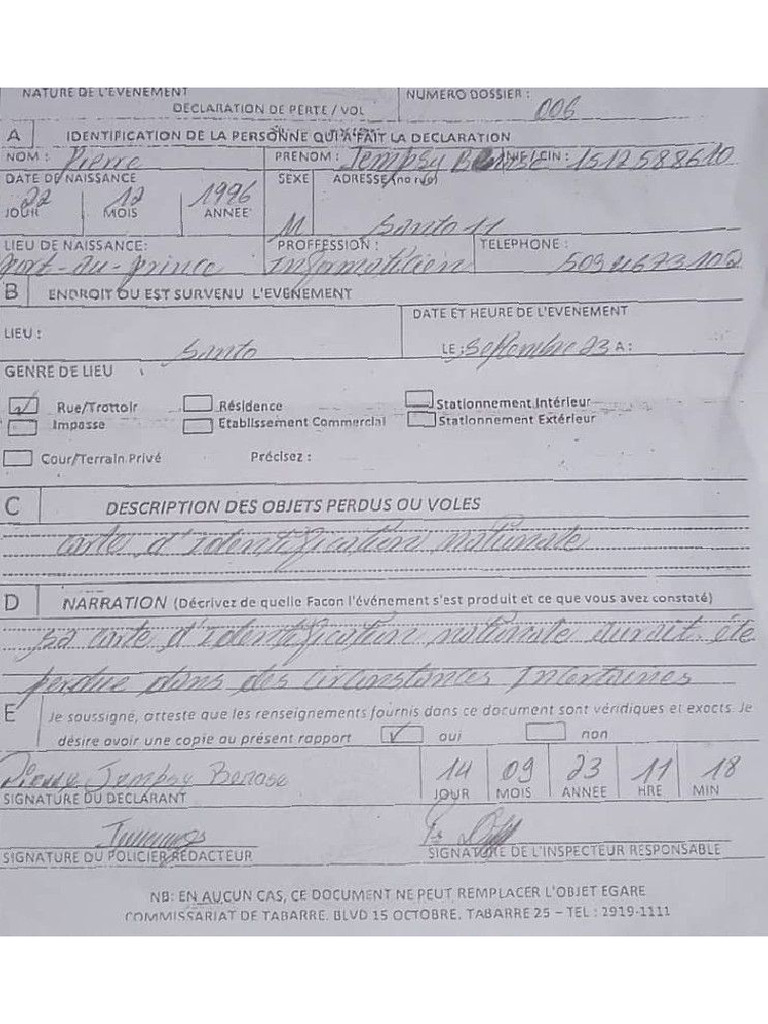 NATURE DE L'EVENEMENT
NUMERO DOSSIER :
DECLARATION DE PERTE / VOL
006
A IDENTIFICATION DE LA PERSONNE QUI A FAIT LA DECLARATION
NOM : Pierre PRENOM : Jempsy CIN : 1512588610
DATE DE NAISSANCE SEXE ADRESSE (no rue)
22 12 1996
JOUR MOIS ANNEE
M Santo 11
LIEU DE NAISSANCE: PROFFESSION : TELEPHONE :
Port-au-prince Informaticien
B ENDROIT OU EST SURVENU L'EVENEMENT
DATE ET HEURE DE L'EVENEMENT
LIEU :
Santo LE : Septembre 23 A :
GENRE DE LIEU
Rue/Trottoir Résidence Stationnement Intérieur
Impasse Etablissement Commercial Stationnement Extérieur
Cour/Terrain Privé Précisez :
C DESCRIPTION DES OBJETS PERDUS OU VOLES
carte d'identification nationale
D NARRATION (Décrivez de quelle Facon l'événement s'est produit et ce que vous avez constaté)
sa carte d'identification nationale aurait été
perdue dans des circonstances Incertaines
E Je soussigné, atteste que les renseignements fournis dans ce document sont véridiques et exacts. Je
désire avoir une copie au présent rapport oui non
Pierre Jempsy 14 09 23 11 18
SIGNATURE DU DECLARANT JOUR MOIS ANNEE HRE MIN
SIGNATURE DU POLICIER REDACTEUR SIGNATURE DE L'INSPECTEUR RESPONSABLE
NB: EN AUCUN CAS, CE DOCUMENT NE PEUT REMPLACER L'OBJET EGARE
COMMISSARIAT DE TABARRE, BLVD 15 OCTOBRE, TABARRE 25 – TEL : 2919-1111